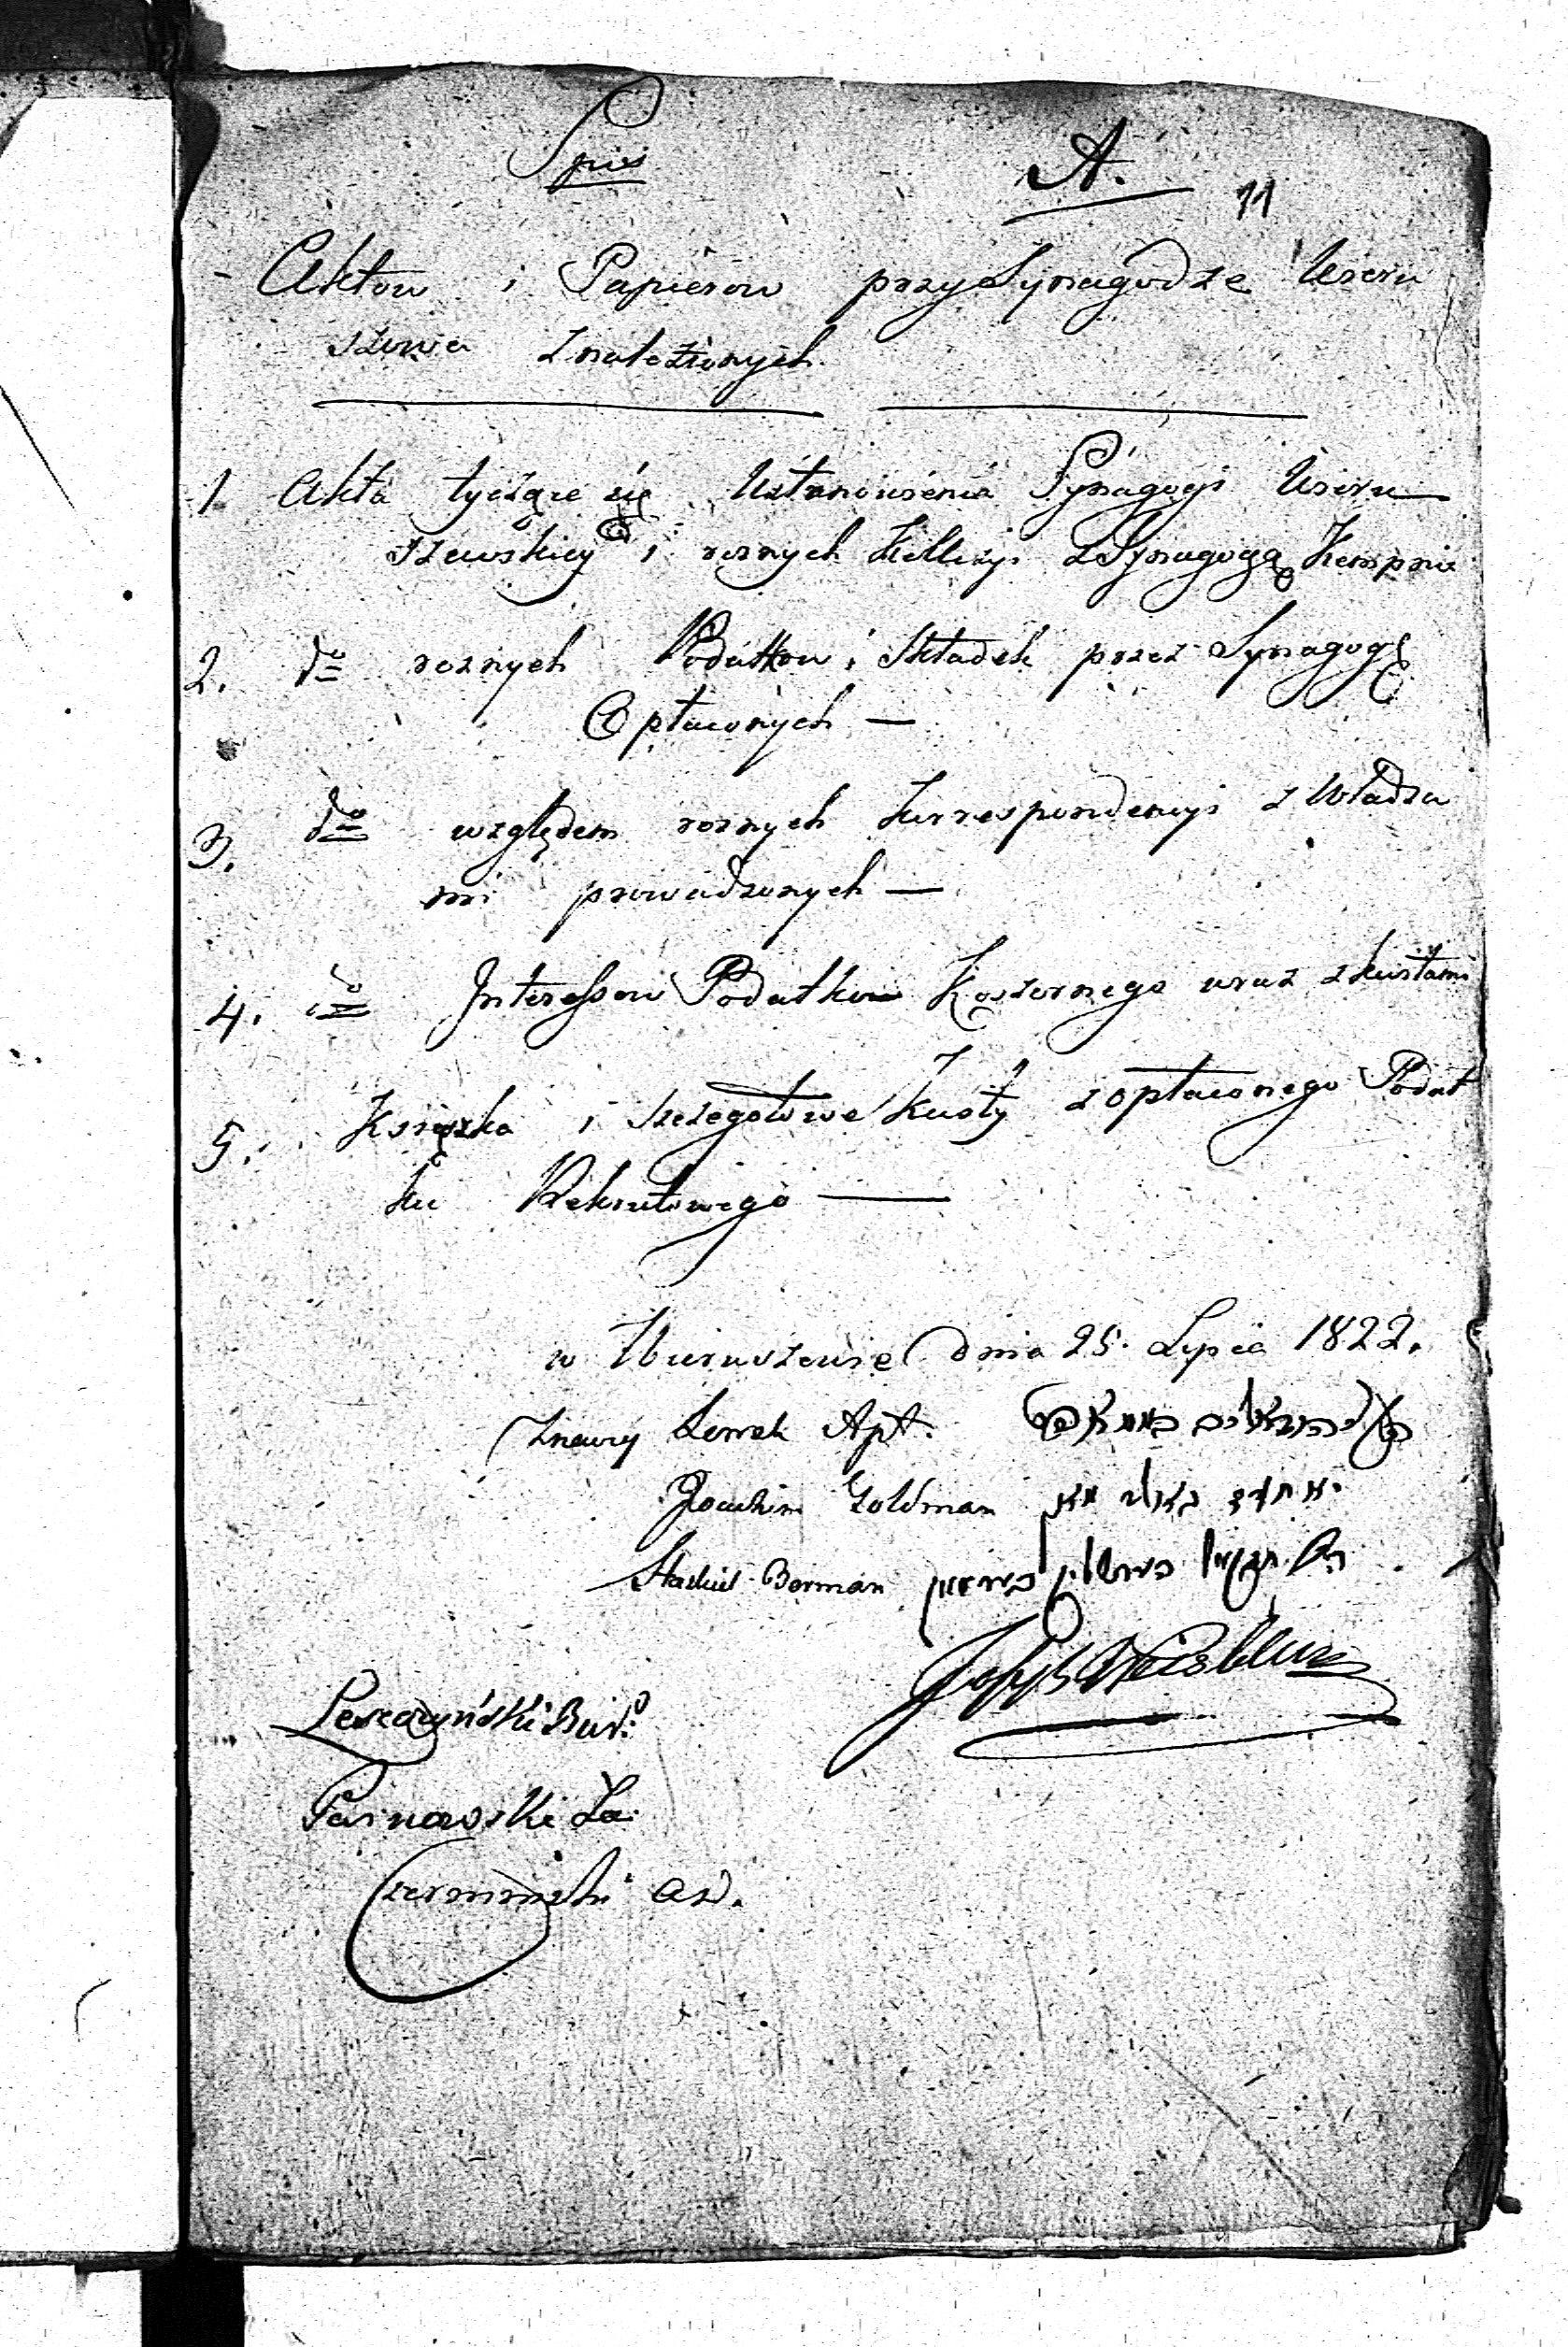 Spis
A.
11
Aktow i Papierow przy Synagodze Wieru
szewa znaleźionych
1. Akta tyczące się Ustanowienia Synagogi Wieru
szewskiey i roznych z Synagogą Kempnie
2. do roznych Podatkow i Składek przez Synagogę
Opłaconych —
3. do względem roznych Korrespondencyi z Władza
mi prowadzonych —
4. do Interessow Podatkow Koszernego wraz z kwitami
5. Książka i szczegołowe Kwity z opłaconego Podat
ku Rekrutowego —
w Wieruszewie dnia 25. Lipca 1822.
Lewek Apt.
Joachim Goldman
Haskiel Berman
Leszczyński Bur:
Tarnowski Ła:
Czermiński as.